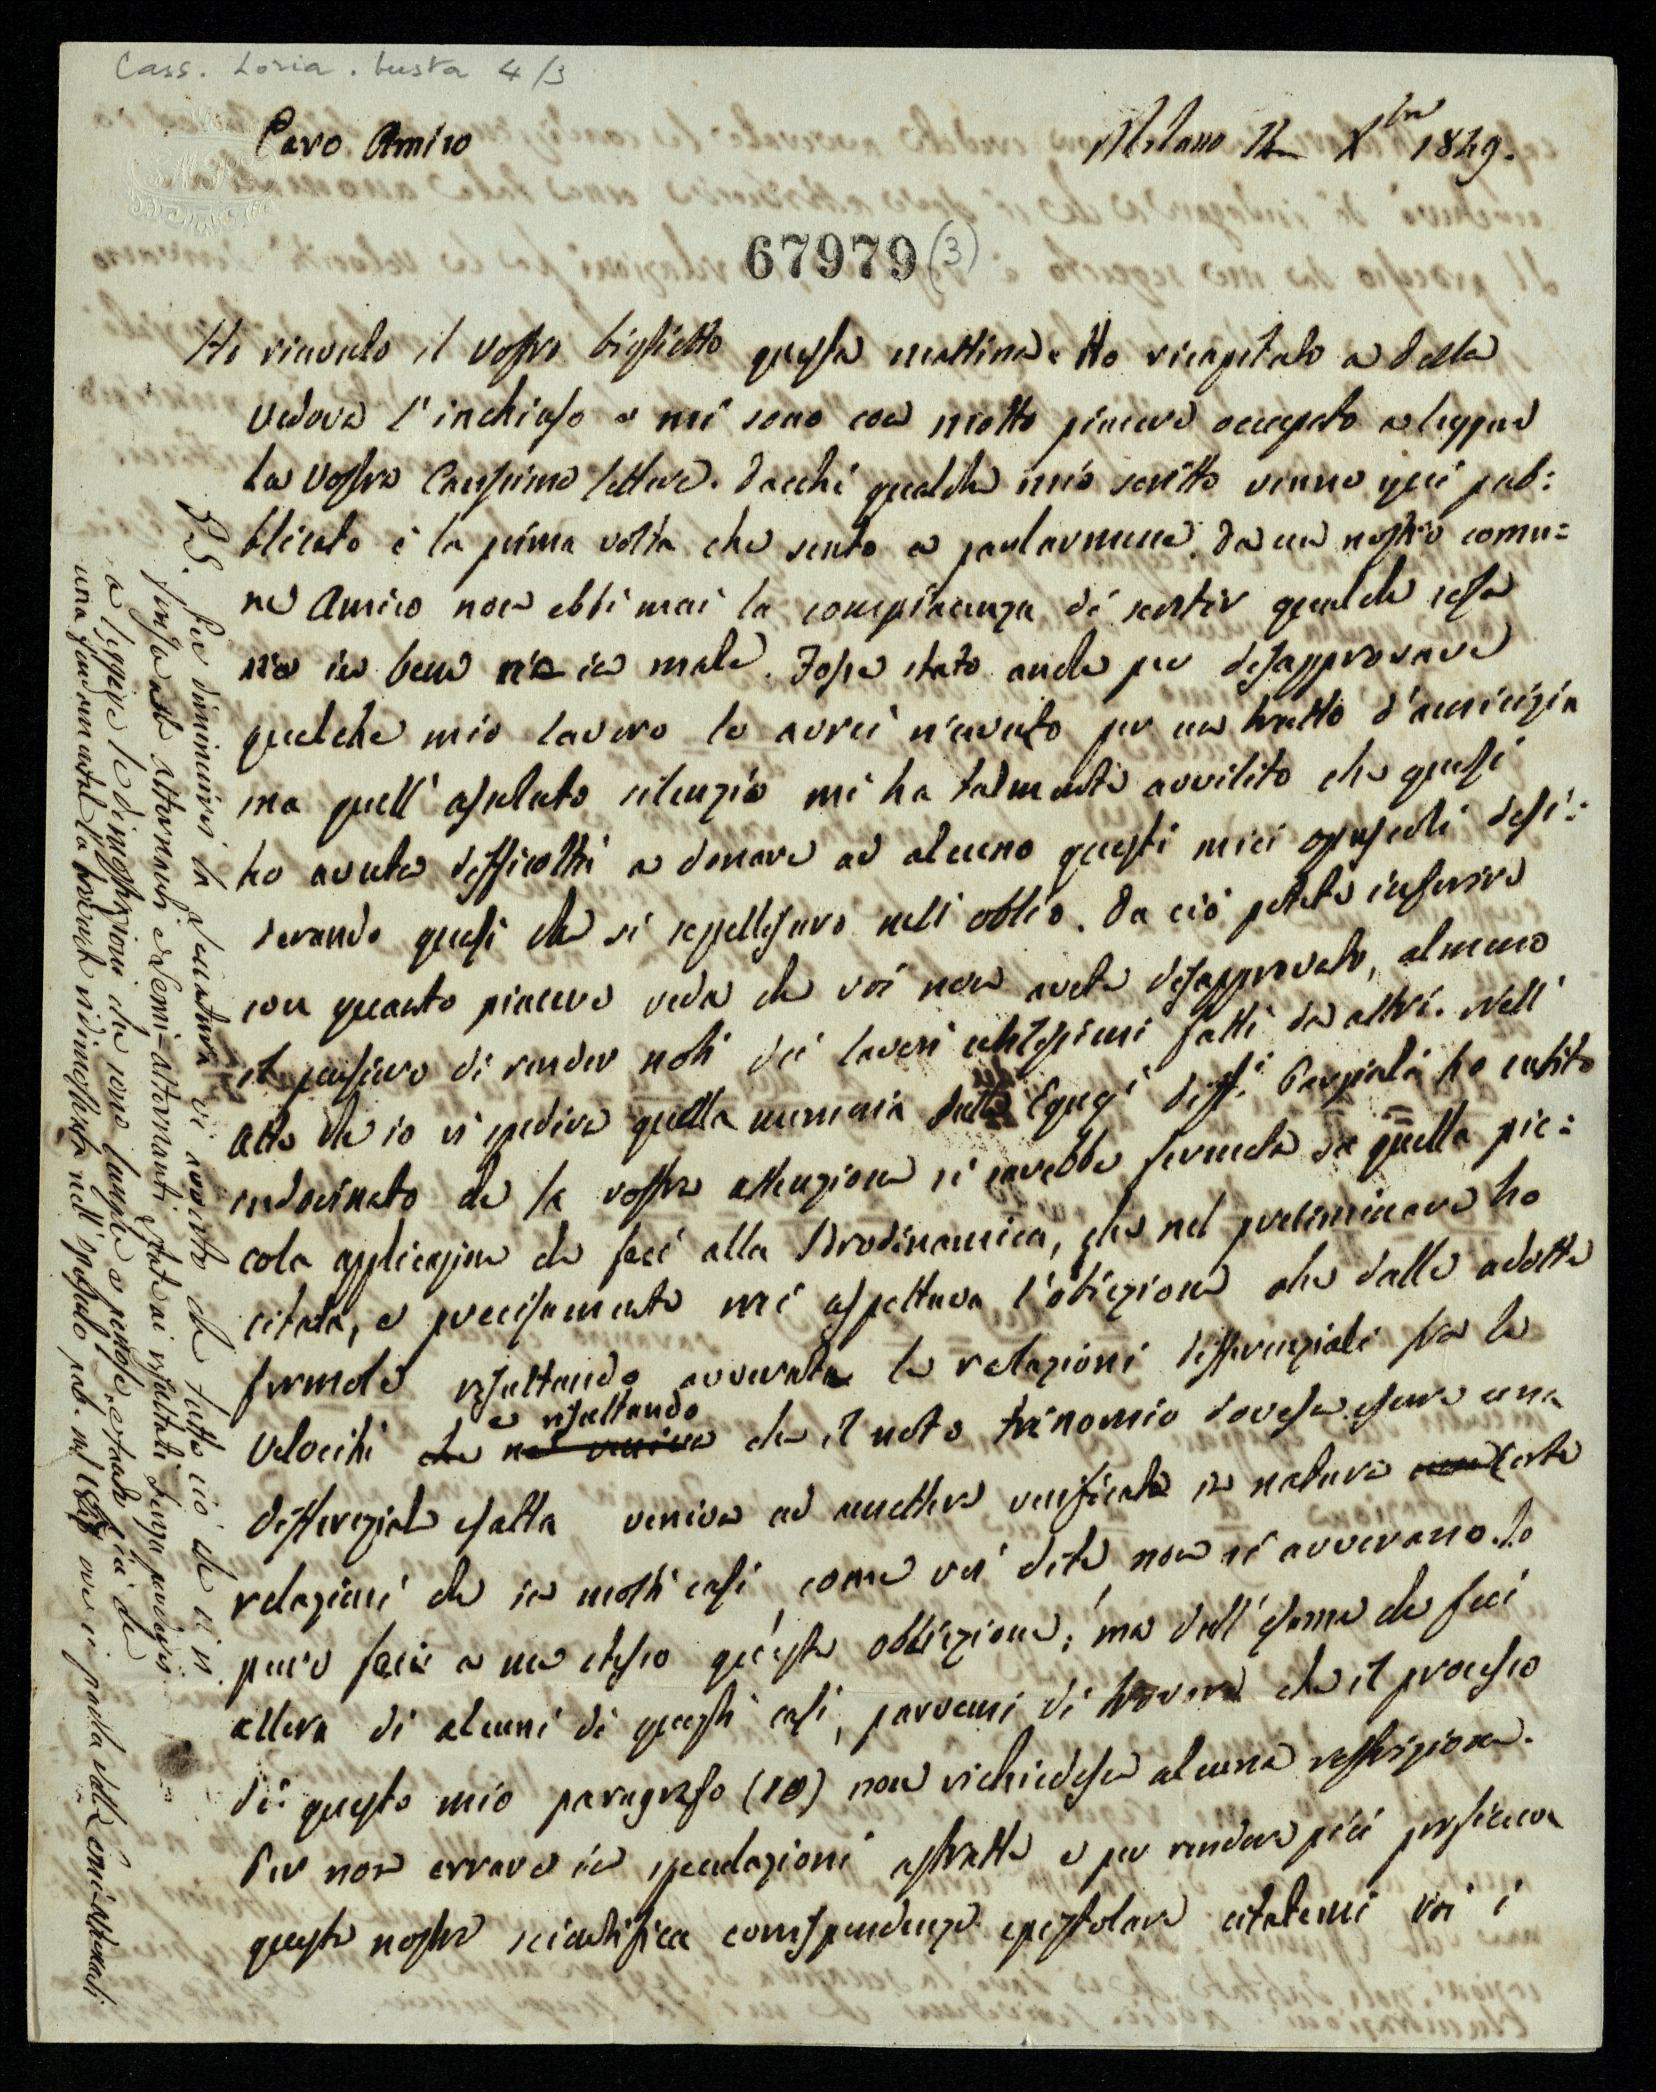 Cass. Loria. busta 4/3
Caro Amico
Milano 12 Xbre 1849.
67979 (3)
Ho ricevuto il vostro biglietto questa mattina. Ho ricapitato a Della
Vedova l'inchiuso e mi sono con molto piacere occupato a leggere
la vostra Carissima lettera. Dacchè qualche mio scritto venne quì pub:
blicato è la prima volta che sento a parlarmene. Da un nostro comu=
ne Amico non ebbi mai la compiacenza di sentir qualche cosa
nè in bene nè in male. Fosse stato anche per disapprovare
qualche mio lavoro lo avrei ricevuto per un tratto d'amicizia
ma quell'assoluto silenzio mi ha talmente avvilito che quasi
ho avuto difficoltà a donare ad alcuno questi miei opuscoli desi:
derando quasi che si seppellissero nell'oblio. Da ciò potete inferire
con quanto piacere veda che voi non avete disapprovato, almeno
il pensiero di render noti dei lavori utilissimi fatti da altri. Nell'
atto che io vi spediva quella memoria sulle Equaz.i Diff.i Parziali ho subito
indovinato che la vostra attenzione si sarebbe fermata su quella pic:
cola applicazione che feci alla Idrodinamica, che nel preliminare ho
citata, e precisamente mi aspettava l'obiezione che dalle adotte
formole risultando avverate le relazioni differenziali fra le
velocità che ne veniva e risultando che il noto trinomio dovesse essere una
differenziale esatta veniva ad ammettere verificate in natura certe
relazioni che in molti casi, come voi dite non si avverano. Io
pure feci a me stesso questa obbiezione; ma dall'esame che feci
allora di alcuni di questi casi, parvemi di trovare che il processo
di questo mio paragrafo (10) non richiedesse alcuna restrizione.
Per non errare in speculazioni astratte e per rendere più proficua
questa nostra scientifica corrispondenza epistolare citatemi voi i
P.S. Per diminuirvi la seccatura vi avverto che tutto ciò che vi si
alternanti e Semi-alternanti, state ai risultati senza perdervi
a leggere le dimostrazioni che sono lunghe e penose
una fondamentale la troverete ridimostrata nell'opuscolo pub. nel ove si parla delle